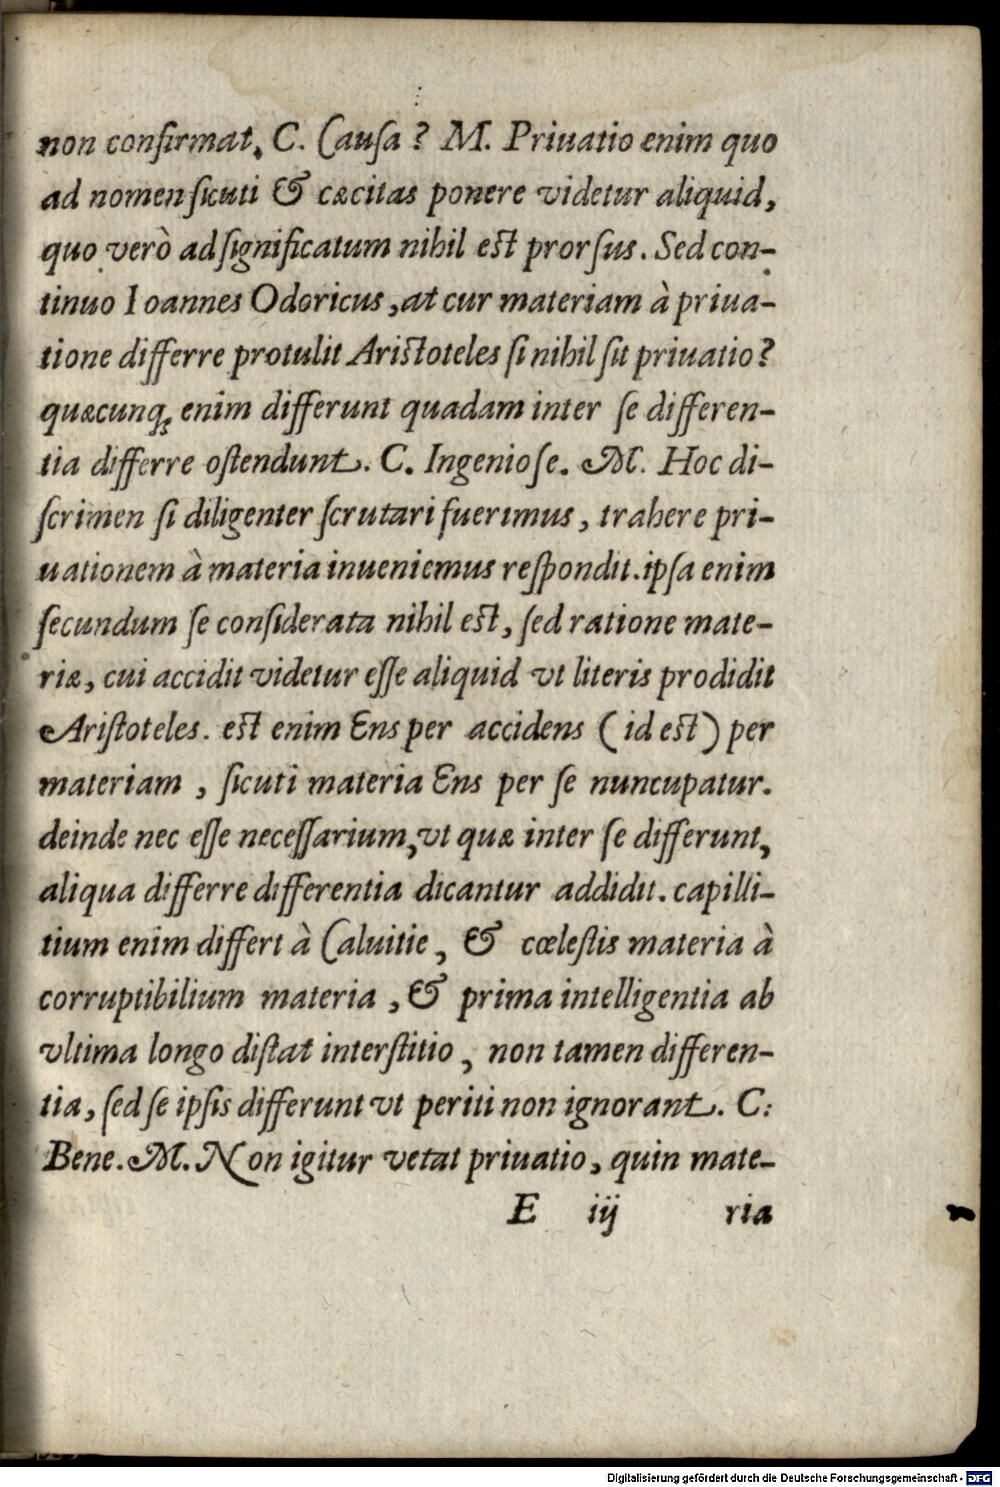 non confirmat. C. Causa? M. Priuatio enim quo
ad nomen sicuti & cæcitas ponere videtur aliquid,
quo verò ad significatum nihil est prorsus. Sed con-
tinuo Ioannes Odoricus, at cur materiam à priua-
tione differre protulit Aristoteles si nihil sit priuatio?
quæcunq; enim differunt quadam inter se differen-
tia differre ostendunt. C. Ingeniose. M. Hoc di-
scrimen si diligenter scrutari fuerimus, trahere pri-
uationem à materia inueniemus respondit. ipsa enim
secundum se considerata nihil est, sed ratione mate-
riæ, cui accidit videtur esse aliquid vt literis prodidit
Aristoteles. est enim Ens per accidens (id est) per
materiam, sicuti materia Ens per se nuncupatur.
deinde nec esse necessarium, vt quæ inter se differunt,
aliqua differre differentia dicantur addidit. capilli-
tium enim differt à Caluitie, & cœlestis materia à
corruptibilium materia, & prima intelligentia ab
vltima longo distat interstitio, non tamen differen-
tia, sed se ipsis differunt vt periti non ignorant. C:
Bene. M. Non igitur vetat priuatio, quin mate-
E iij ria
Digitalisierung gefördert durch die Deutsche Forschungsgemeinschaft - DFG